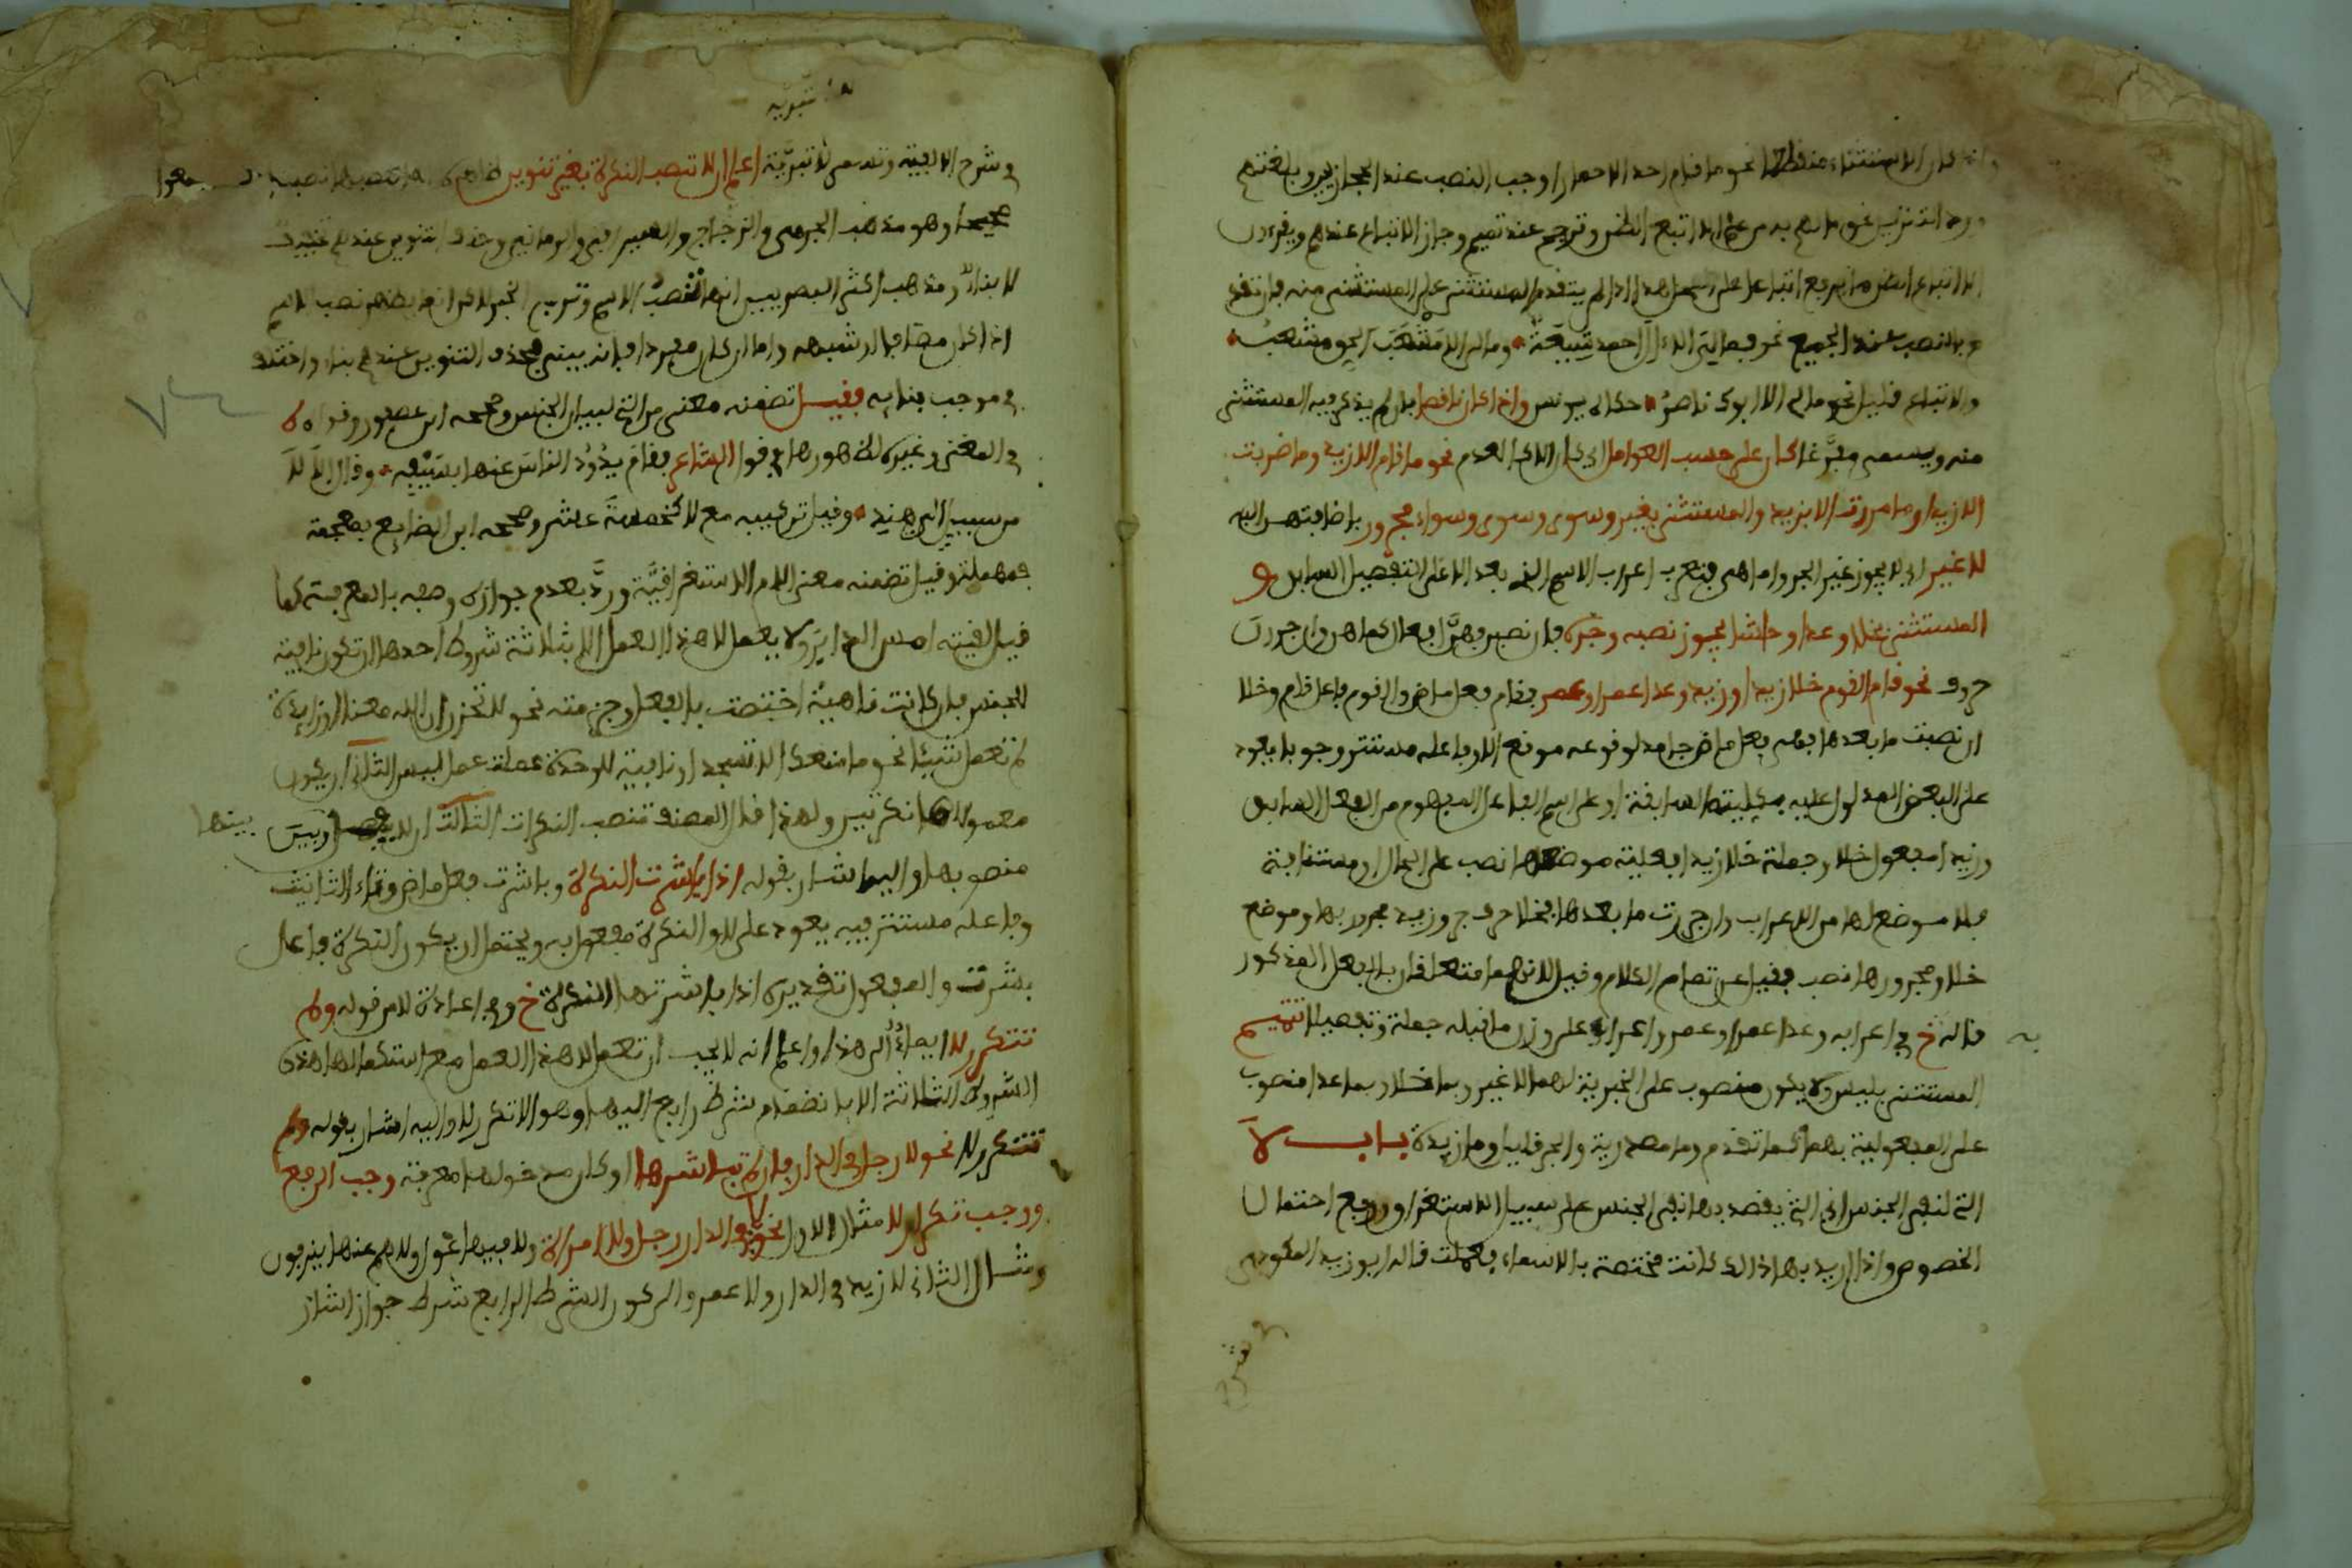 وإذا كان الاستثناء منقطعا نحو ما قام احد الا حمارا وجب النصب عند الحجازيين وبلغتهم
ورد التنزيل نحو ما لهم به من علم الا اتباع الظن وترجح عند تميم وجاز الاتباع عندهم ويقرءون
الا اتباع الظن بالرفع اتباعا على المحل هذا اذا لم يتقدم المستثنى على المستثنى منه فان تقدم
وجب النصب عند الجميع نحو فما لي الا آل احمد شيعة وما لي الا مشعب الحق مشعب
والاتباع قليل نحو ما لي الا ابوك ناصر حكاه يونس وإذا كان ناقصا بان لم يذكر فيه المستثنى
منه ويسمى مفرغا كان على حسب العوامل اي كان الا كالعدم نحو ما قام الا زيد وما ضربت
الا زيدا وما مررت الا بزيد والمستثنى بغير وسوى وسوى وسواء مجرور باضافتهن اليه
لا غير اي لا يجوز غير الجر واما هي فتعرب اعراب الاسم الذي بعد الا على التفصيل السابق و
المستثنى بخلا وعدا وحاشا يجوز نصبه وجره فان نصبن فهن افعال كما هن وان جررن
حروف نحو قام القوم خلا زيدا وزيد وعدا عمرا وعمر فقام فعل ماض والقوم فاعل قام وخلا
ان نصبت ما بعدها فهي فعل ماض جامد لوقوعه موقع الا وفاعله مستتر وجوبا يعود
على البعض المدلول عليه بكليته السابقة او على اسم الفاعل المفهوم من الفعل السابق
وزيدا مفعول خلا وجملة خلا زيدا فعلية موضعها نصب على الحال او مستانفة
فلا موضع لها من الاعراب وان جررت ما بعدها فخلا حرف جر وزيد مجرور بها وموضع
خلا ومجرورها نصب فقيل عن تمام الكلام وقيل لانهما متعلقان بالفعل المذكور
قاله خ في اعرابه وعدا عمرا وعمر واعرابه على وزن ما قبله جملة وتفصيلا تتميم
المستثنى بليس ولا يكون منصوب على الخبرية لهما لا غير وبما خلا وبما عدا منصوب
على المفعولية بهما كما تقدم وما مصدرية والجر قليل وما زيدة بـــاب لا
التي لنفي الجنس اي التي يقصد بها نفي الجنس على سبيل الاستغراق ورفع احتمال
الخصوص واذا اريد بها ذلك كانت مختصة بالاسماء فعملت قاله ابو زيد المكودي
في شرح
تبرية
في شرح الالفية وتسمى لا تبرية اعلم ان لا تنصب النكرة بغير تنوين
صحيحا وهو مذهب الجرمي والزجاج والسيرافي والرماني وحذف التنوين عندهم تخفيف
لا بناء ومذهب اكثر البصريين انها تنصب الاسم وترفع الخبر لاكن انما يظهر نصب الاسم
اذا كان مضافا او شبهه واما ان كان مفردا فانه يبنى فحذف التنوين عندهم بناء واختلف
في موجب بنايه فقيل تضمنه معنى من التي لبيان الجنس وصححه ابن عصفور وقواه
في المغني وغيره لظهورها في قول الشاعر فقام يذود الناس عنها بسيفه وقال الا لا
من سبيل الى هند وقيل تركيبه مع لا كخمسة عشر وصححه ابن الضايع بمعجمة
فمهملة وقيل تضمنه معنى اللام الاستغراقية ورد بعدم جواز وصفه بالمعرفة كما
قيل لقيته امس الدابر ولا يعمل لا هذا العمل الا بثلاثة شروط احدها ان تكون نافية
للجنس فان كانت ناهية اختصت بالفعل وجزمته نحو لا تحزن ان الله معنا او زايدة
لم تعمل شيئا نحو ما منعك الا تسجد او نافية للوحدة عملت عمل ليس الثاني ان يكون
معمولاها نكرتين ولهذا قال المصنف تنصب النكرات الثالث ان لا يفصل بينها وبين
منصوبها واليه اشار بقوله اذا باشرت النكرة وباشرت فعل ماض وتاء التانيث
وفاعله مستتر فيه يعود على لا والنكرة مفعول به ويحتمل ان يكون النكرة فاعل
بشرت والمفعول تقديره اذا باشرتها النكرة خ وفي اعادة لا من قوله ولم
تتكرر لا ايماء الى هذا واعلم انه لا يجب ان تعمل لا هذا العمل مع استكمالها هذه
الشروط الثلاثة الا بانضمام شرط رابع اليها وهو الا تكرر لا واليه اشار بقوله ولم
تتكرر لا نحو لا رجل في الدار فان لم تباشرها او كان مدخولها معرفة وجب الرفع
ووجب تكرار لا مثال الاول نحو لا في الدار رجل ولا امراة ولا فيها غول ولا هم عنها ينزفون
ومثال الثاني لا زيد في الدار ولا عمرو الى كون الشرط الرابع شرط جواز اشار